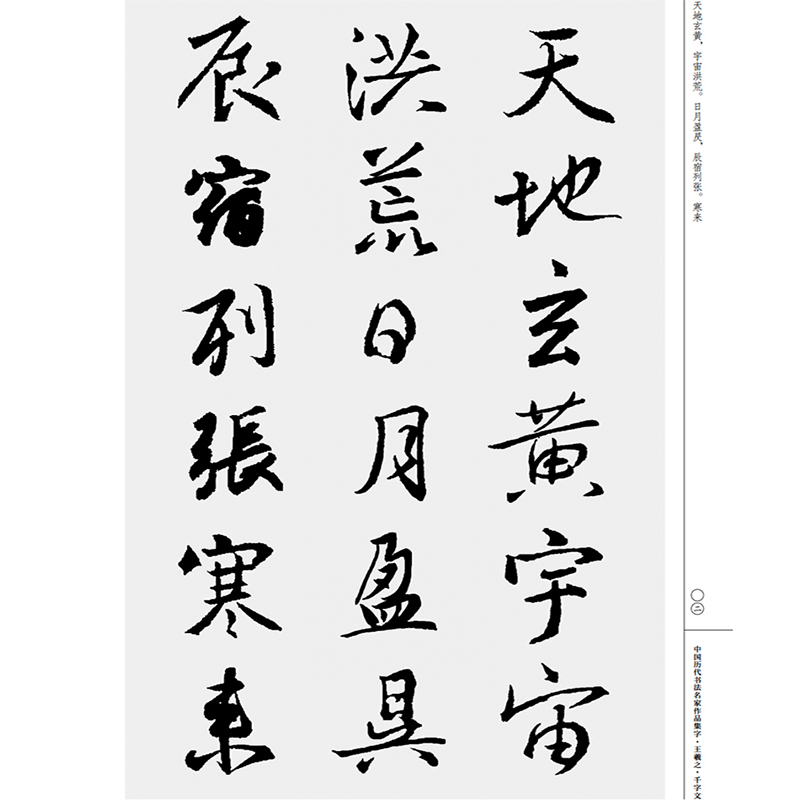 天地玄黄，宇宙洪荒。日月盈昃，辰宿列张。寒来
〇二
中国历代书法名家作品集字·王羲之·千字文
天地玄黄宇宙
洪荒日月盈昃
辰宿列張寒来